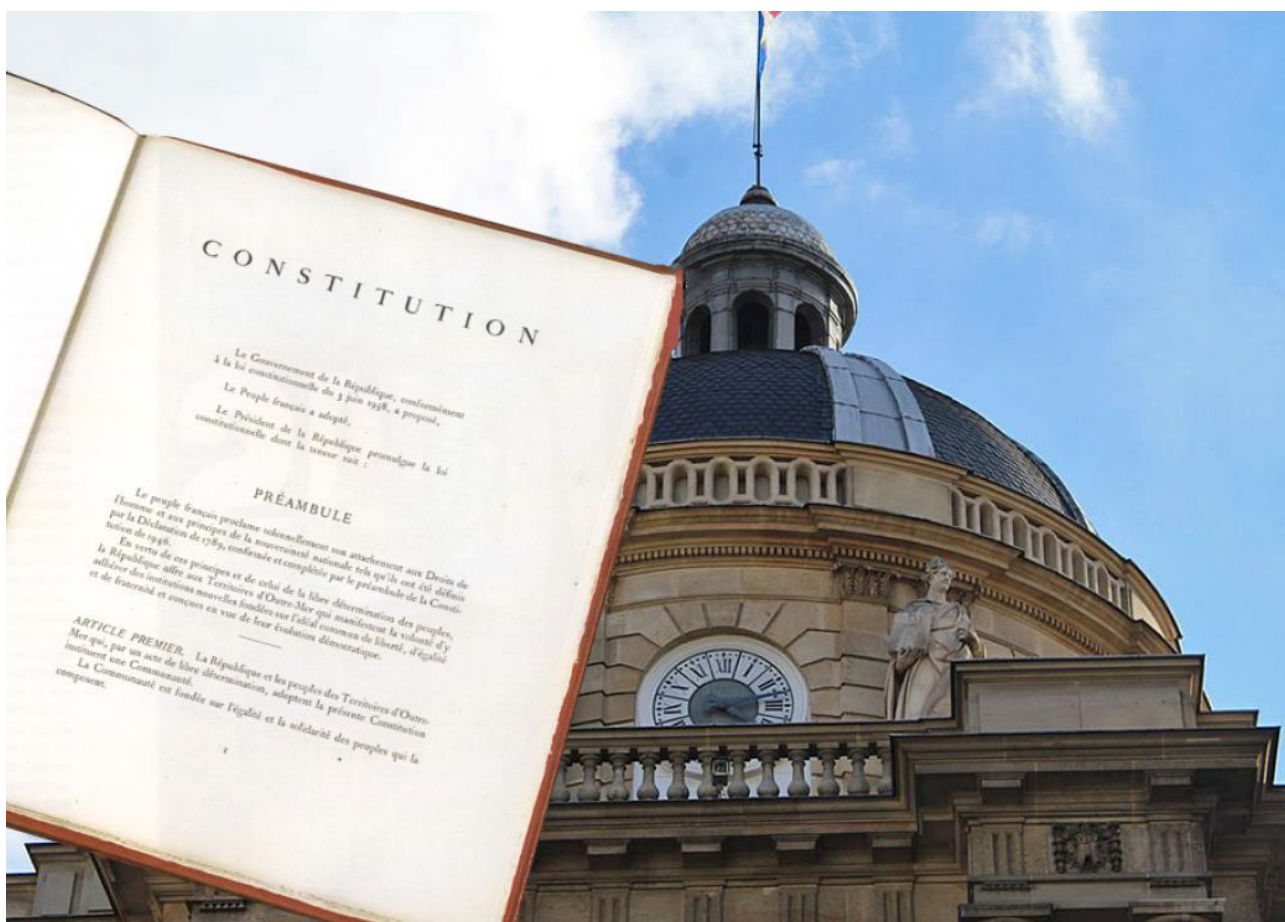 CONSTITUTION
Le Gouvernement de la République, conformément
à la loi constitutionnelle du 3 juin 1958, a proposé,
Le Peuple français a adopté,
Le Président de la République promulgue la loi
constitutionnelle dont la teneur suit :
PRÉAMBULE
Le peuple français proclame solennellement son attachement aux Droits de
l'homme et aux principes de la souveraineté nationale tels qu'ils ont été définis
par la Déclaration de 1789, confirmée et complétée par le préambule de la Consti-
tution de 1946.
En vertu de ces principes et de celui de la libre détermination des peuples,
la République offre aux Territoires d'Outre-Mer qui manifestent la volonté d'y
adhérer des institutions nouvelles fondées sur l'idéal commun de liberté, d'égalité
et de fraternité et conçues en vue de leur évolution démocratique.
ARTICLE PREMIER. La République et les peuples des Territoires d'Outre-
Mer qui, par un acte de libre détermination, adoptent la présente Constitution
instituent une Communauté.
La Communauté est fondée sur l'égalité et la solidarité des peuples qui la
composent.
1
XI XII I
X II
IX III